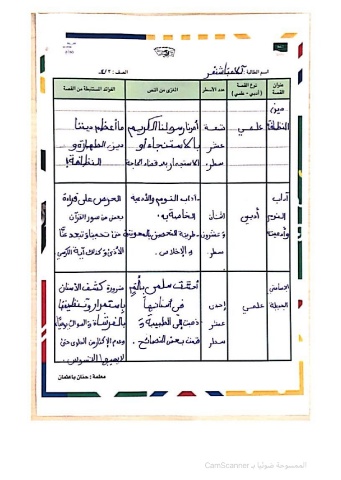 اسم الطالبة : آلاء باشنفر
الصف : ٢/٣
عنوان القصة
نوع القصة (أدبي - علمي)
عدد الأسطر
المغزى من النص
الفوائد المستنبطة من القصة
دين النظافة
علمي
تسعة عشر سطر
أمرنا رسولنا الكريم
بالاستنجاء أو
الاستجمار بعد قضاء الحاجة
ما أعظم ديننا
دين الطهارة و
النظافة!
آداب النوم وأدعيته
أدبي
اثنان و عشرون سطر
- آداب النوم والأدعية
الخاصة به.
- طريقة التحصن بالمعوذتين
و الإخلاص.
الحرص على قراءة
بعض من سور القرآن
حتى تحمينا وتبعد عنا
الأذى وكذلك آية الكرسي
علمي
إحدى عشر سطر
أحست سلمى بألم
في أسنانها
ذهبت إلى الطبيبة و
قدمت بعض النصائح.
ضرورة كشف الأسنان
باستمرار وتنظيفها
بالفرشاة والسواك يوميا
وعدم الإكثار من الحلوى حتى
لا يصيبها التسوس.
معلمة : حنان باعثمان
الممسوحة ضوئيا بـ CamScanner